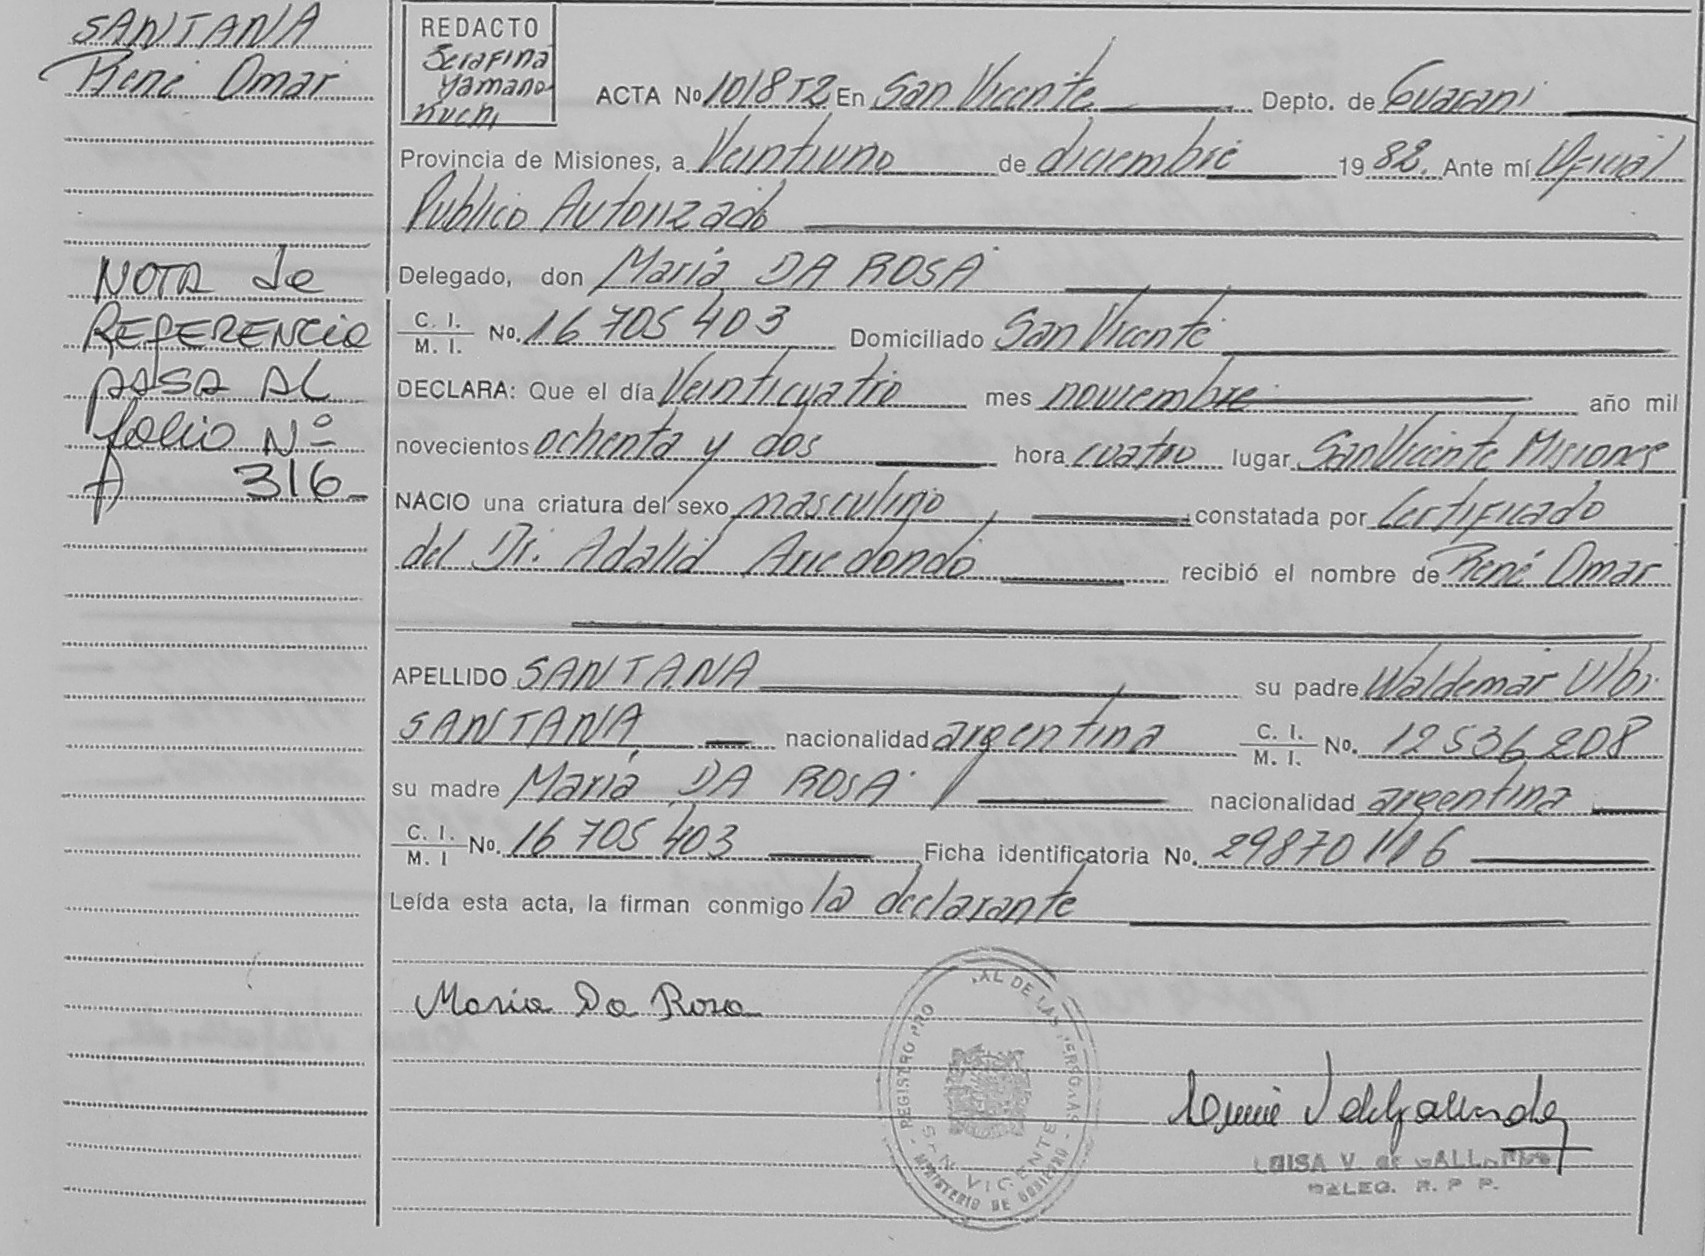 SANTANA
René Omar
NOTA de
REFERENCIA
PASA AL
folio Nº
A 316-
REDACTO
Serafina
Yamano
ACTA No 1018 T2 En San Vicente Depto. de Guarani
Provincia de Misiones, a Veintiuno de diciembre 1982. Ante mí Oficial
Publico Autorizado
Delegado, don Maria DA ROSA
C. I.
M. I. No. 16 705 403 Domiciliado San Vicente
DECLARA: Que el día Veinticuatro mes noviembre año mil
novecientos ochenta y dos hora cuatro lugar San Vicente Misiones
NACIO una criatura del sexo masculino constatada por Certificado
del Dr. Adalid Arredondo recibió el nombre de René Omar
APELLIDO SANTANA su padre Waldemar Ulbi
SANTANA nacionalidad argentina C. I.
M. I. No. 12 536 208
su madre Maria DA ROSA nacionalidad argentina
C. I.
M. I No. 16 705 403 Ficha identificatoria No.
Leída esta acta, la firman conmigo la declarante
Maria Da Rosa
REGISTRO PRO AL DE LAS PERSONAS
SAN VICENTE
MINISTERIO DE GOBIERNO
LUISA V. de
DELEG. R. P P.